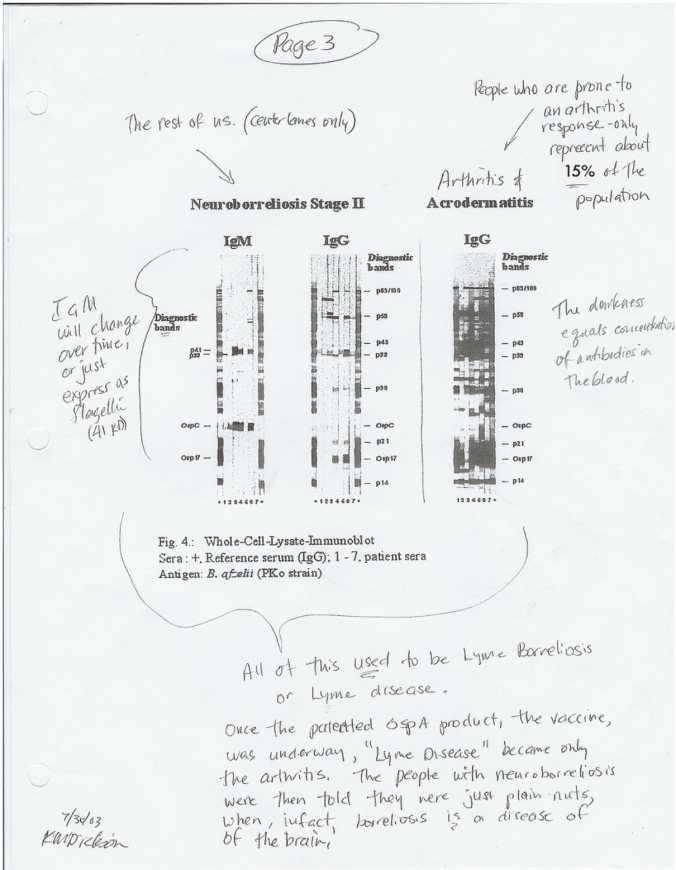 Page 3
People who are prone to
an arthritis
response - only
represent about
15% of the
population
The rest of us. (center lanes only)
Arthritis &
Neuroborreliosis Stage II
Acrodermatitis
IgM
IgG
IgG
Diagnostic
bands
Diagnostic
bands
Diagnostic
bands
p83/100
p58
p43
p39
p30
OspC
p21
Osp17
p14
p41
p39
OspC
Osp17
p83/100
p58
p43
p39
p30
OspC
p21
Osp17
p14
+ 1 2 3 4 5 6 7 +
+ 1 2 3 4 5 6 7 +
+ 1 2 3 4 5 6 7 +
IgM
will change
over time,
or just
express as
flagellin
(41 kD)
The darkness
equals concentration
of antibodies in
the blood.
Fig. 4.: Whole-Cell-Lysate-Immunoblot
Sera : +, Reference serum (IgG); 1 - 7, patient sera
Antigen: B. afzelii (PKo strain)
All of this used to be Lyme Borreliosis
or Lyme disease.
Once the patented OspA product, the vaccine,
was underway, "Lyme Disease" became only
the arthritis. The people with neuroborreliosis
were then told they were just plain nuts,
when, infact, borreliosis is a disease of
of the brain,
7/30/03
KMDickson